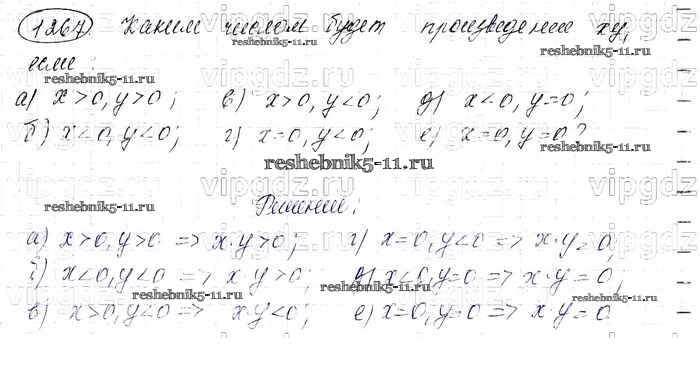 1267 Каким числом будет произведение xy,
если:
а) x>0, y>0; в) x>0, y<0; д) x<0, y=0;
б) x<0, y<0; г) x=0, y<0; е) x=0, y=0?
Решение:
а) x>0, y>0 => x·y>0; г) x=0, y<0 => x·y=0,
б) x<0, y<0 => x·y>0; д) x<0, y=0 => x·y=0;
в) x>0, y<0 => x·y<0; е) x=0, y=0 => x·y=0
reshebnik5-11.ru
vipgdz